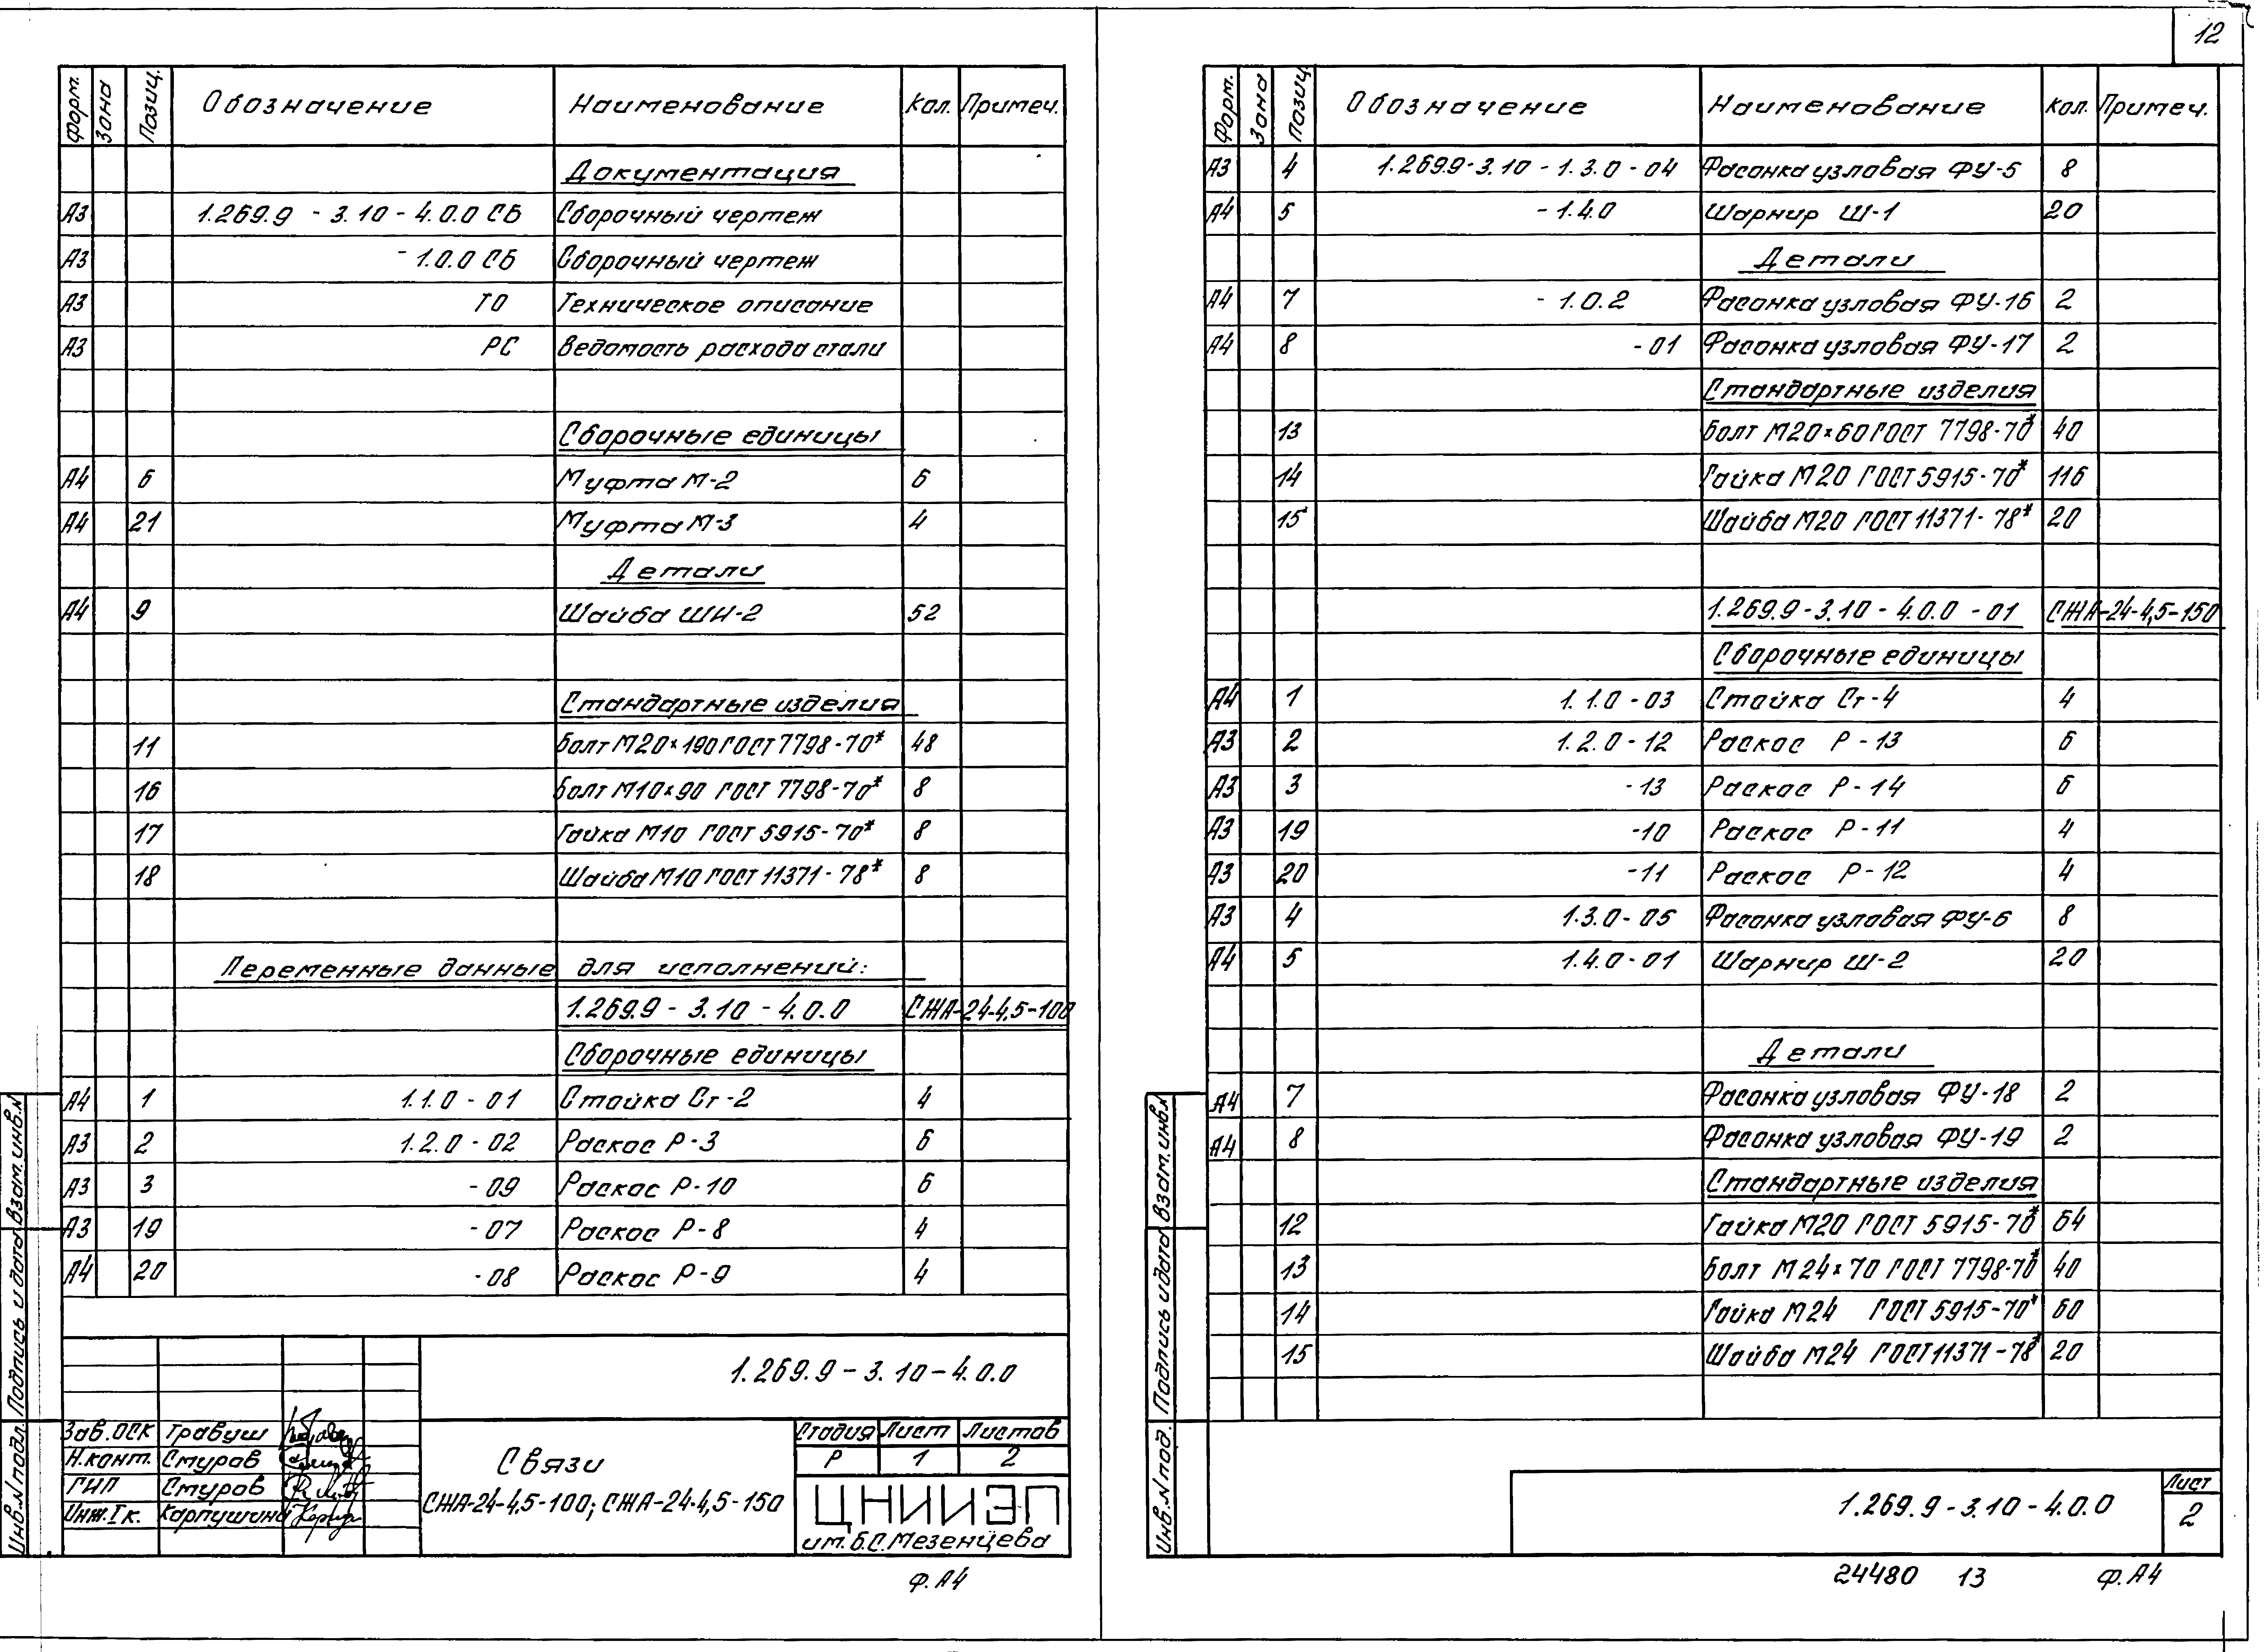 12
Форм. Зона Позиц. Обозначение Наименование Кол. Примеч.
Документация
А3 1.269.9 - 3.10 - 4.0.0 СБ Сборочный чертеж
А3 - 1.0.0 СБ Сборочный чертеж
А3 ТО Техническое описание
А3 РС Ведомость расхода стали
Сборочные единицы
А4 6 Муфта М-2 6
А4 21 Муфта М-3 4
Детали
А4 9 Шайба ШН-2 52
Стандартные изделия
11 Болт М20×190 ГОСТ 7798-70* 48
16 Болт М10×90 ГОСТ 7798-70* 8
17 Гайка М10 ГОСТ 5915-70* 8
18 Шайба М10 ГОСТ 11371-78* 8
Переменные данные для исполнений:
1.269.9 - 3.10 - 4.0.0 СЖА-24-4,5-100
Сборочные единицы
А4 1 1.1.0 - 01 Стойка Ст-2 4
А3 2 1.2.0 - 02 Раскос Р-3 6
А3 3 - 09 Раскос Р-10 6
А3 19 - 07 Раскос Р-8 4
А4 20 - 08 Раскос Р-9 4
1.269.9 - 3.10 - 4.0.0
Зав.ОСК Травуш
Н.конт. Стуров
ГИП Стуров
Инж.Iк. Карпушина
Связи
СЖА-24-4,5-100; СЖА-24-4,5-150
Стадия Лист Листов
Р 1 2
ЦНИИЭП
им. Б.С. Мезенцева
Инв.№ подл. Подпись и дата Взам.инв.№
Ф.А4
Форм. Зона Позиц. Обозначение Наименование Кол. Примеч.
А3 4 1.269.9-3.10 - 1.3.0 - 04 Фасонка узловая ФУ-5 8
А4 5 - 1.4.0 Шарнир Ш-1 20
Детали
А4 7 - 1.0.2 Фасонка узловая ФУ-16 2
А4 8 - 01 Фасонка узловая ФУ-17 2
Стандартные изделия
13 Болт М20×60 ГОСТ 7798-70* 40
14 Гайка М20 ГОСТ 5915-70* 116
15 Шайба М20 ГОСТ 11371-78* 20
1.269.9-3.10 - 4.0.0 - 01 СЖА-24-4,5-150
Сборочные единицы
А4 1 1.1.0 - 03 Стойка Ст-4 4
А3 2 1.2.0 - 12 Раскос Р-13 6
А3 3 - 13 Раскос Р-14 6
А3 19 -10 Раскос Р-11 4
А3 20 -11 Раскос Р-12 4
А3 4 1.3.0 - 05 Фасонка узловая ФУ-6 8
А4 5 1.4.0 - 01 Шарнир Ш-2 20
Детали
А4 7 Фасонка узловая ФУ-18 2
А4 8 Фасонка узловая ФУ-19 2
Стандартные изделия
12 Гайка М20 ГОСТ 5915-70* 64
13 Болт М24×70 ГОСТ 7798-70* 40
14 Гайка М24 ГОСТ 5915-70* 60
15 Шайба М24 ГОСТ 11371-78* 20
1.269.9-3.10-4.0.0
Лист
2
Инв.№ под. Подпись и дата Взам.инв.№
24480 13 Ф.А4